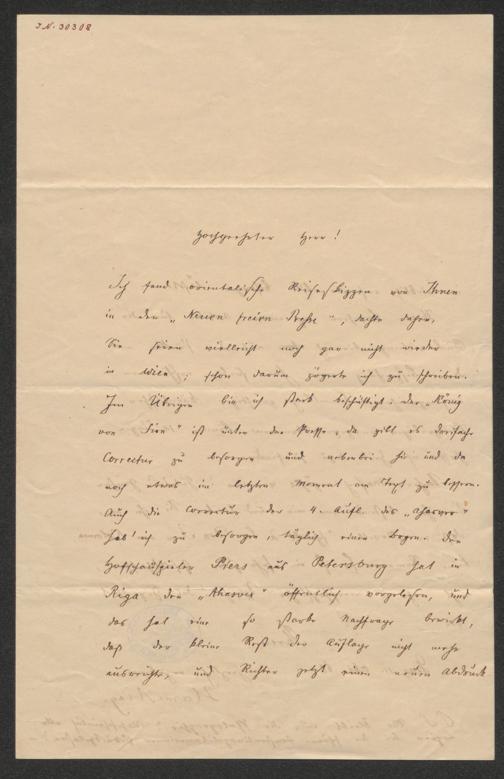 I.N. 30308
Hochgeehrter Herr!
Ich fand orientalische Reiseskizzen von Ihnen
in der „Neuen freien Presse", dachte daher,
Sie seien vielleicht noch gar nicht wieder
in Wien; schon darum zögerte ich zu schreiben.
Im Übrigen bin ich stark beschäftigt: der „König
von Sion" ist unter der Presse, da gibt es dreifache
Correctur zu besorgen und nebenbei hie und da
noch etwas im letzten Moment am Text zu bessern.
Auch die Correctur der 4. Aufl. des „Ahasver"
hab' ich zu besorgen, täglich einen Bogen. Der
Hofschauspieler aus Petersburg hat in
Riga den „Ahasver" öffentlich vorgelesen, und
das hat eine so starke Nachfrage bewirkt,
daß der kleine Rest der Auflage nicht mehr
ausreichte, und Richter jetzt einen neuen Abdruck